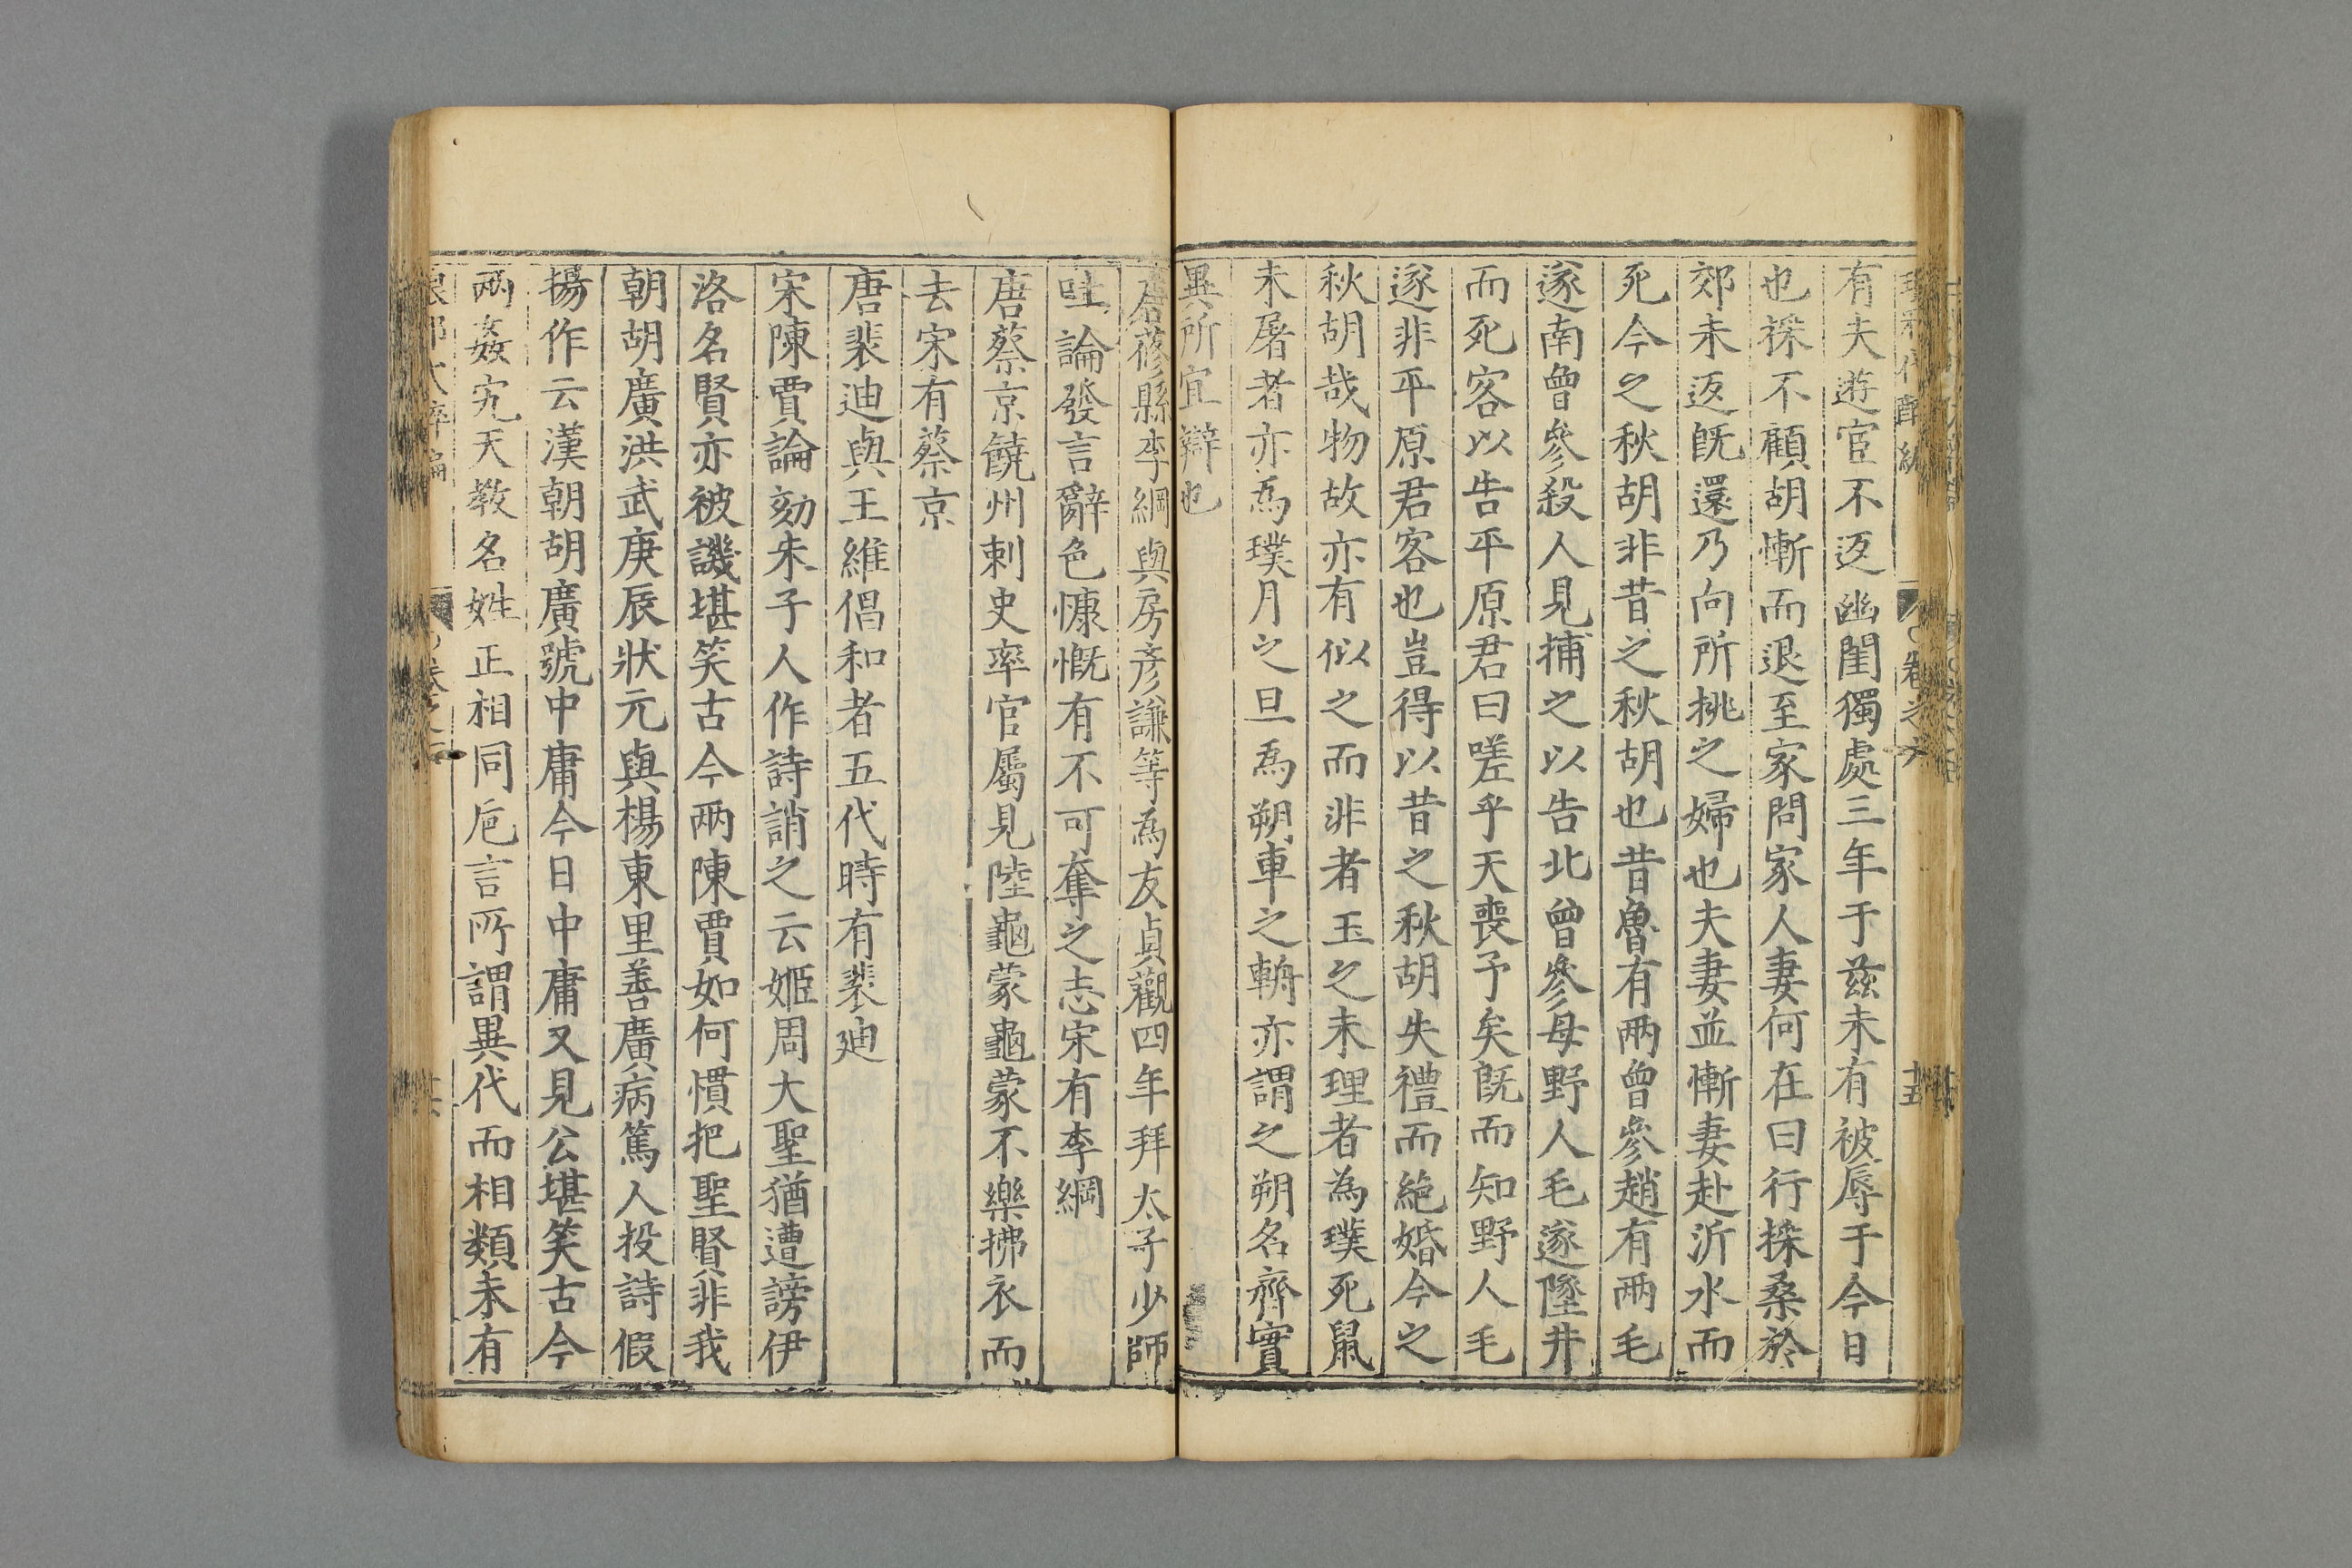 有夫遊宦不返幽閨獨處三年于茲未有被辱于今日
也採不顧胡慚而退至家問家人妻何在曰行採桑於
郊未返既還乃向所挑之婦也夫妻並慚妻赴沂水而
死今之秋胡非昔之秋胡也昔魯有两曾參趙有两毛
遂南曾參殺人見捕之以告北曾參母野人毛遂墜井
而死客以告平原君曰嗟乎天喪予矣既而知野人毛
遂非平原君客也豈得以昔之秋胡失禮而絶婚今之
秋胡哉物故亦有似之而非者玉之未理者為璞死鼠
未屠者亦爲璞月之旦爲朔車之輈亦謂之朔名齊實
異所宜辯也
唐蓚縣李綱與房彦謙等為友貞觀四年拜太子少師
吐論發言辭色慷慨有不可奪之志宋有李綱
唐蔡京饒州刺史率官屬見陸龜蒙龜蒙不樂拂衣而
去宋有蔡京
唐裴迪與王維倡和者五代時有裴廸
宋陳賈論劾朱子人作詩誚之云姬周大聖猶遭謗伊
洛名賢亦被譏堪笑古今两陳賈如何慣把聖賢非我
朝胡廣洪武庚辰狀元與楊東里善廣病篤人投詩假
楊作云漢朝胡廣號中庸今日中庸又見公堪笑古今
两姦宄天教名姓正相同巵言所謂異代而相類未有
卷之六
十五